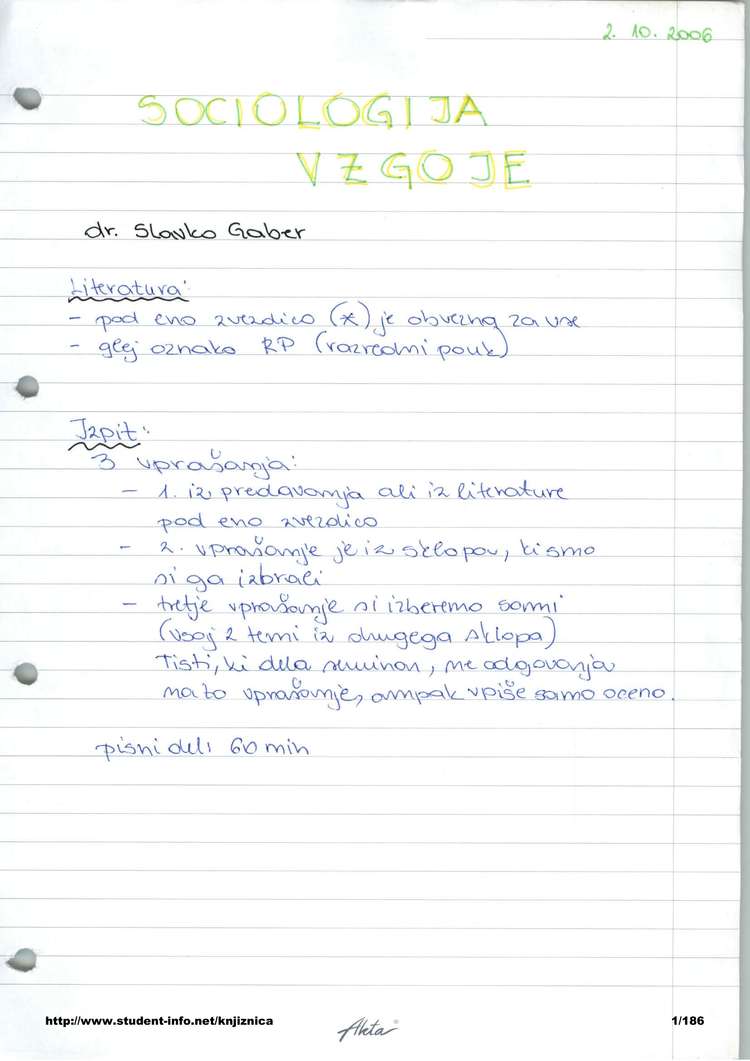 2. 10. 2006
SOCIOLOGIJA
VZGOJE
dr. Slavko Gaber
Literatura:
- pod eno zvezdico (*) je obvezna za vse
- glej oznako RP (razredni pouk)
Izpit:
3 vprašanja:
- 1. iz predavanja ali iz literature
pod eno zvezdico
- 2. vprašanje je iz sklopov, ki smo
si ga izbrali
- tretje vprašanje si izberemo sami
(vsaj 2 temi iz drugega sklopa)
Tisti, ki dela seminar, ne odgovarja
na to vprašanje, ampak vpiše samo oceno.
pisni del: 60 min
http://www.student-info.net/knjiznica
Aleta
1/186